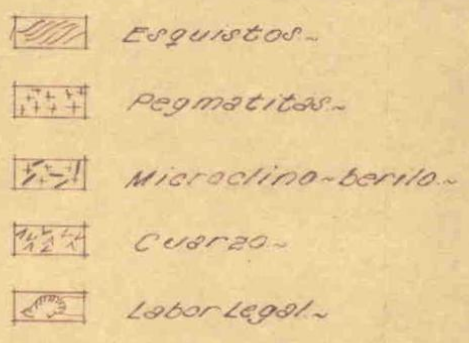 Esquistos~
Pegmatitas~
Microclino~berilo~
Cuarzo~
Labor Legal~